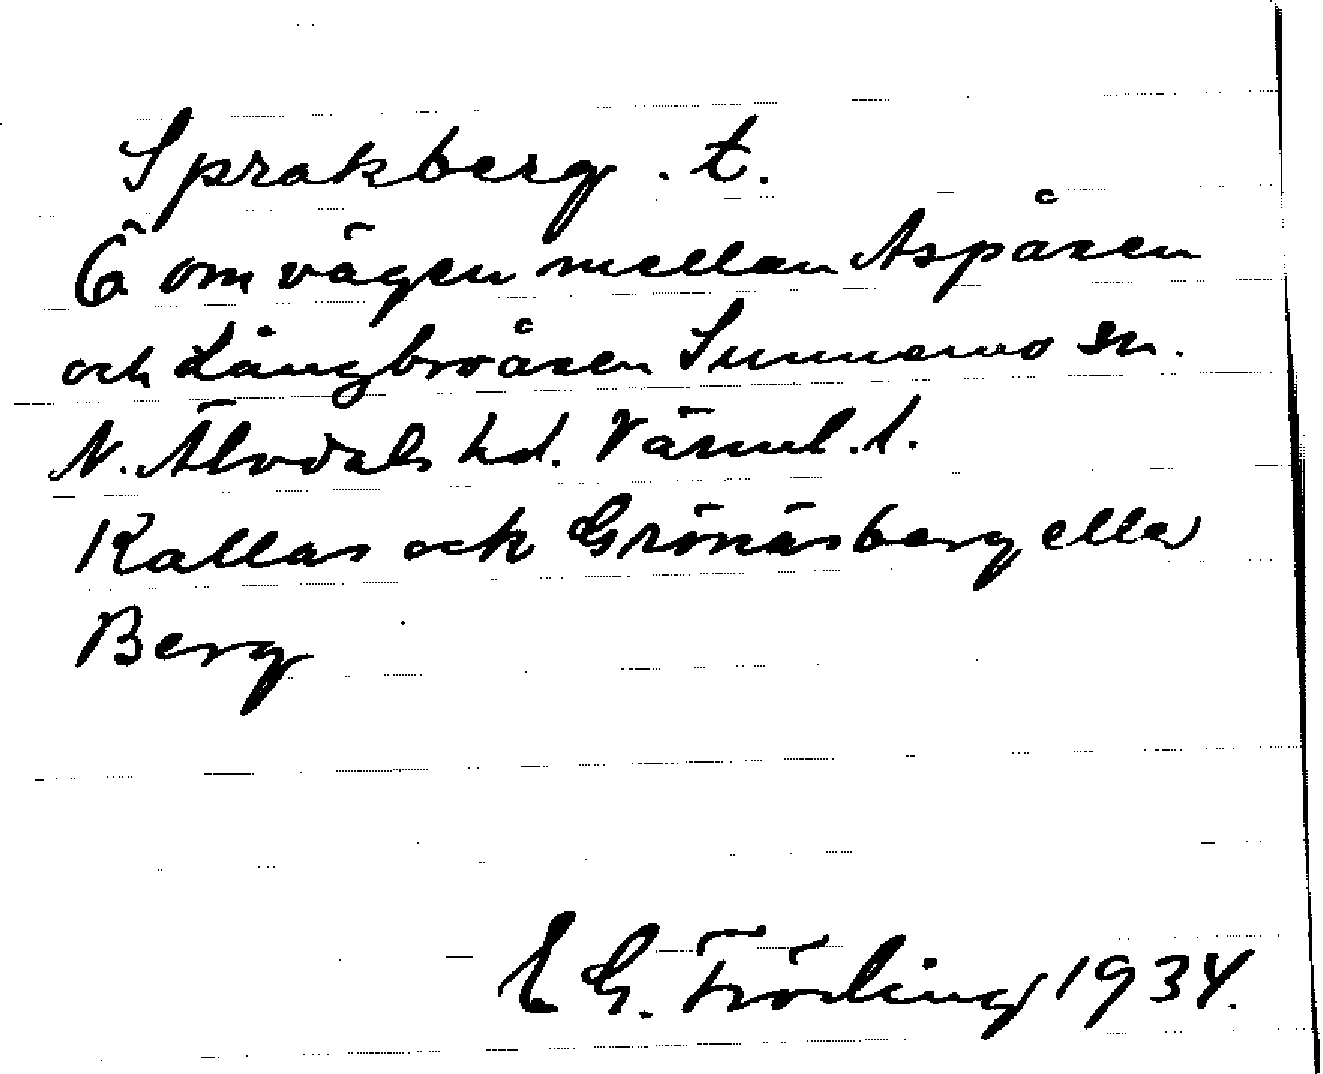 Sprakberg . t.
Ö om vägen mellan Aspåsen
och Långbroåsen Sunnemo sn.
N. Älvdals hd. Värml. l.
Kallas och Grönäsberg eller
Berg
E G. Fröding 1934.